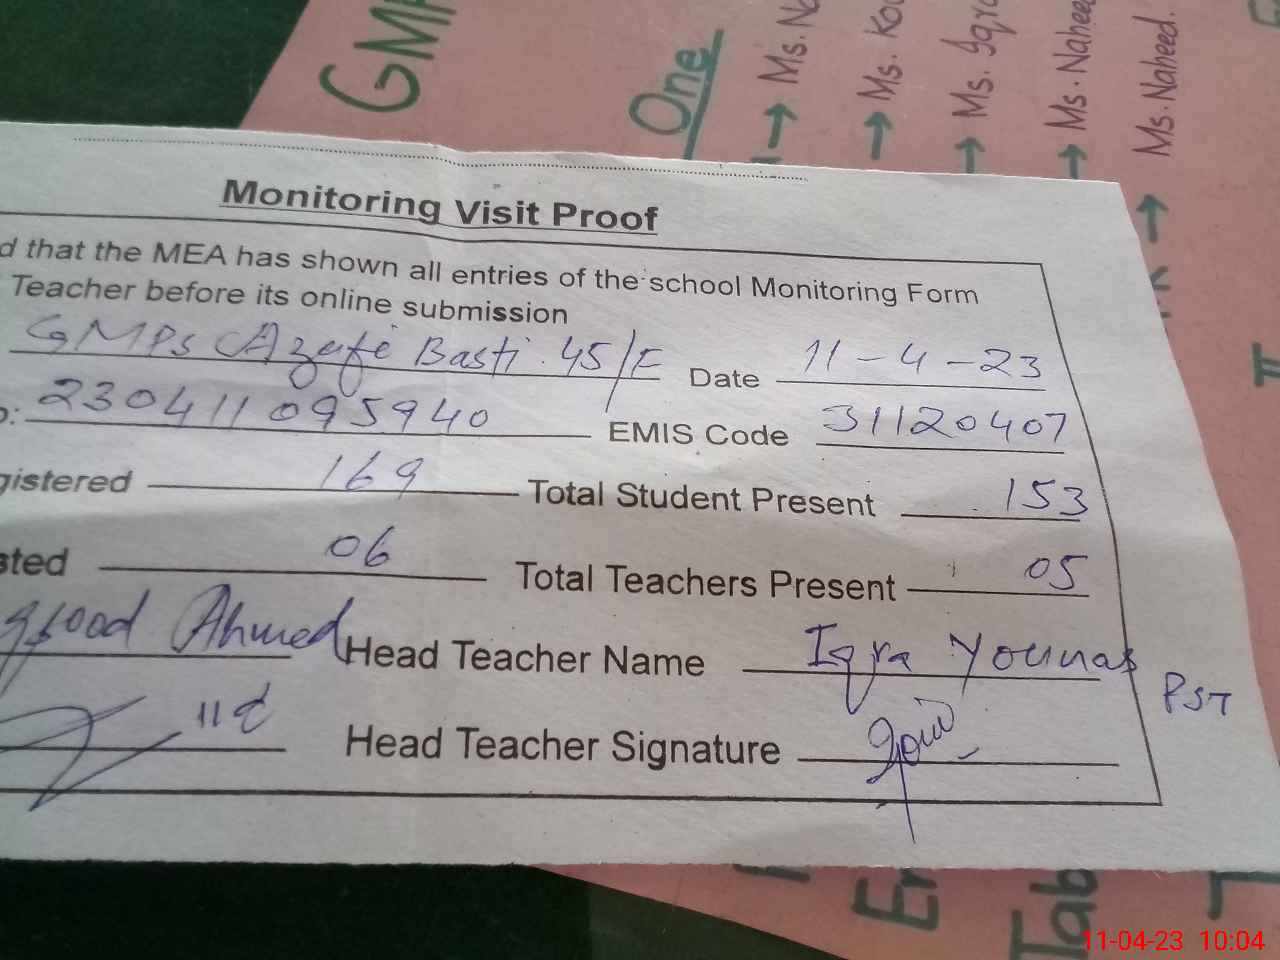 GMP
One
Ms. Na
Ms. Kou
Ms. Iqra
Ms. Naheed
Ms. Naheed.
Monitoring Visit Proof
d that the MEA has shown all entries of the school Monitoring Form
Teacher before its online submission
GMPs Azafi Basti 45/F Date 11-4-23
o: 2304110095940 EMIS Code 31120407
gistered 169 Total Student Present 153
sted 06 Total Teachers Present 05
Ahmed Head Teacher Name Iqra Younas PST
Head Teacher Signature
En
Tab
11-04-23 10:04